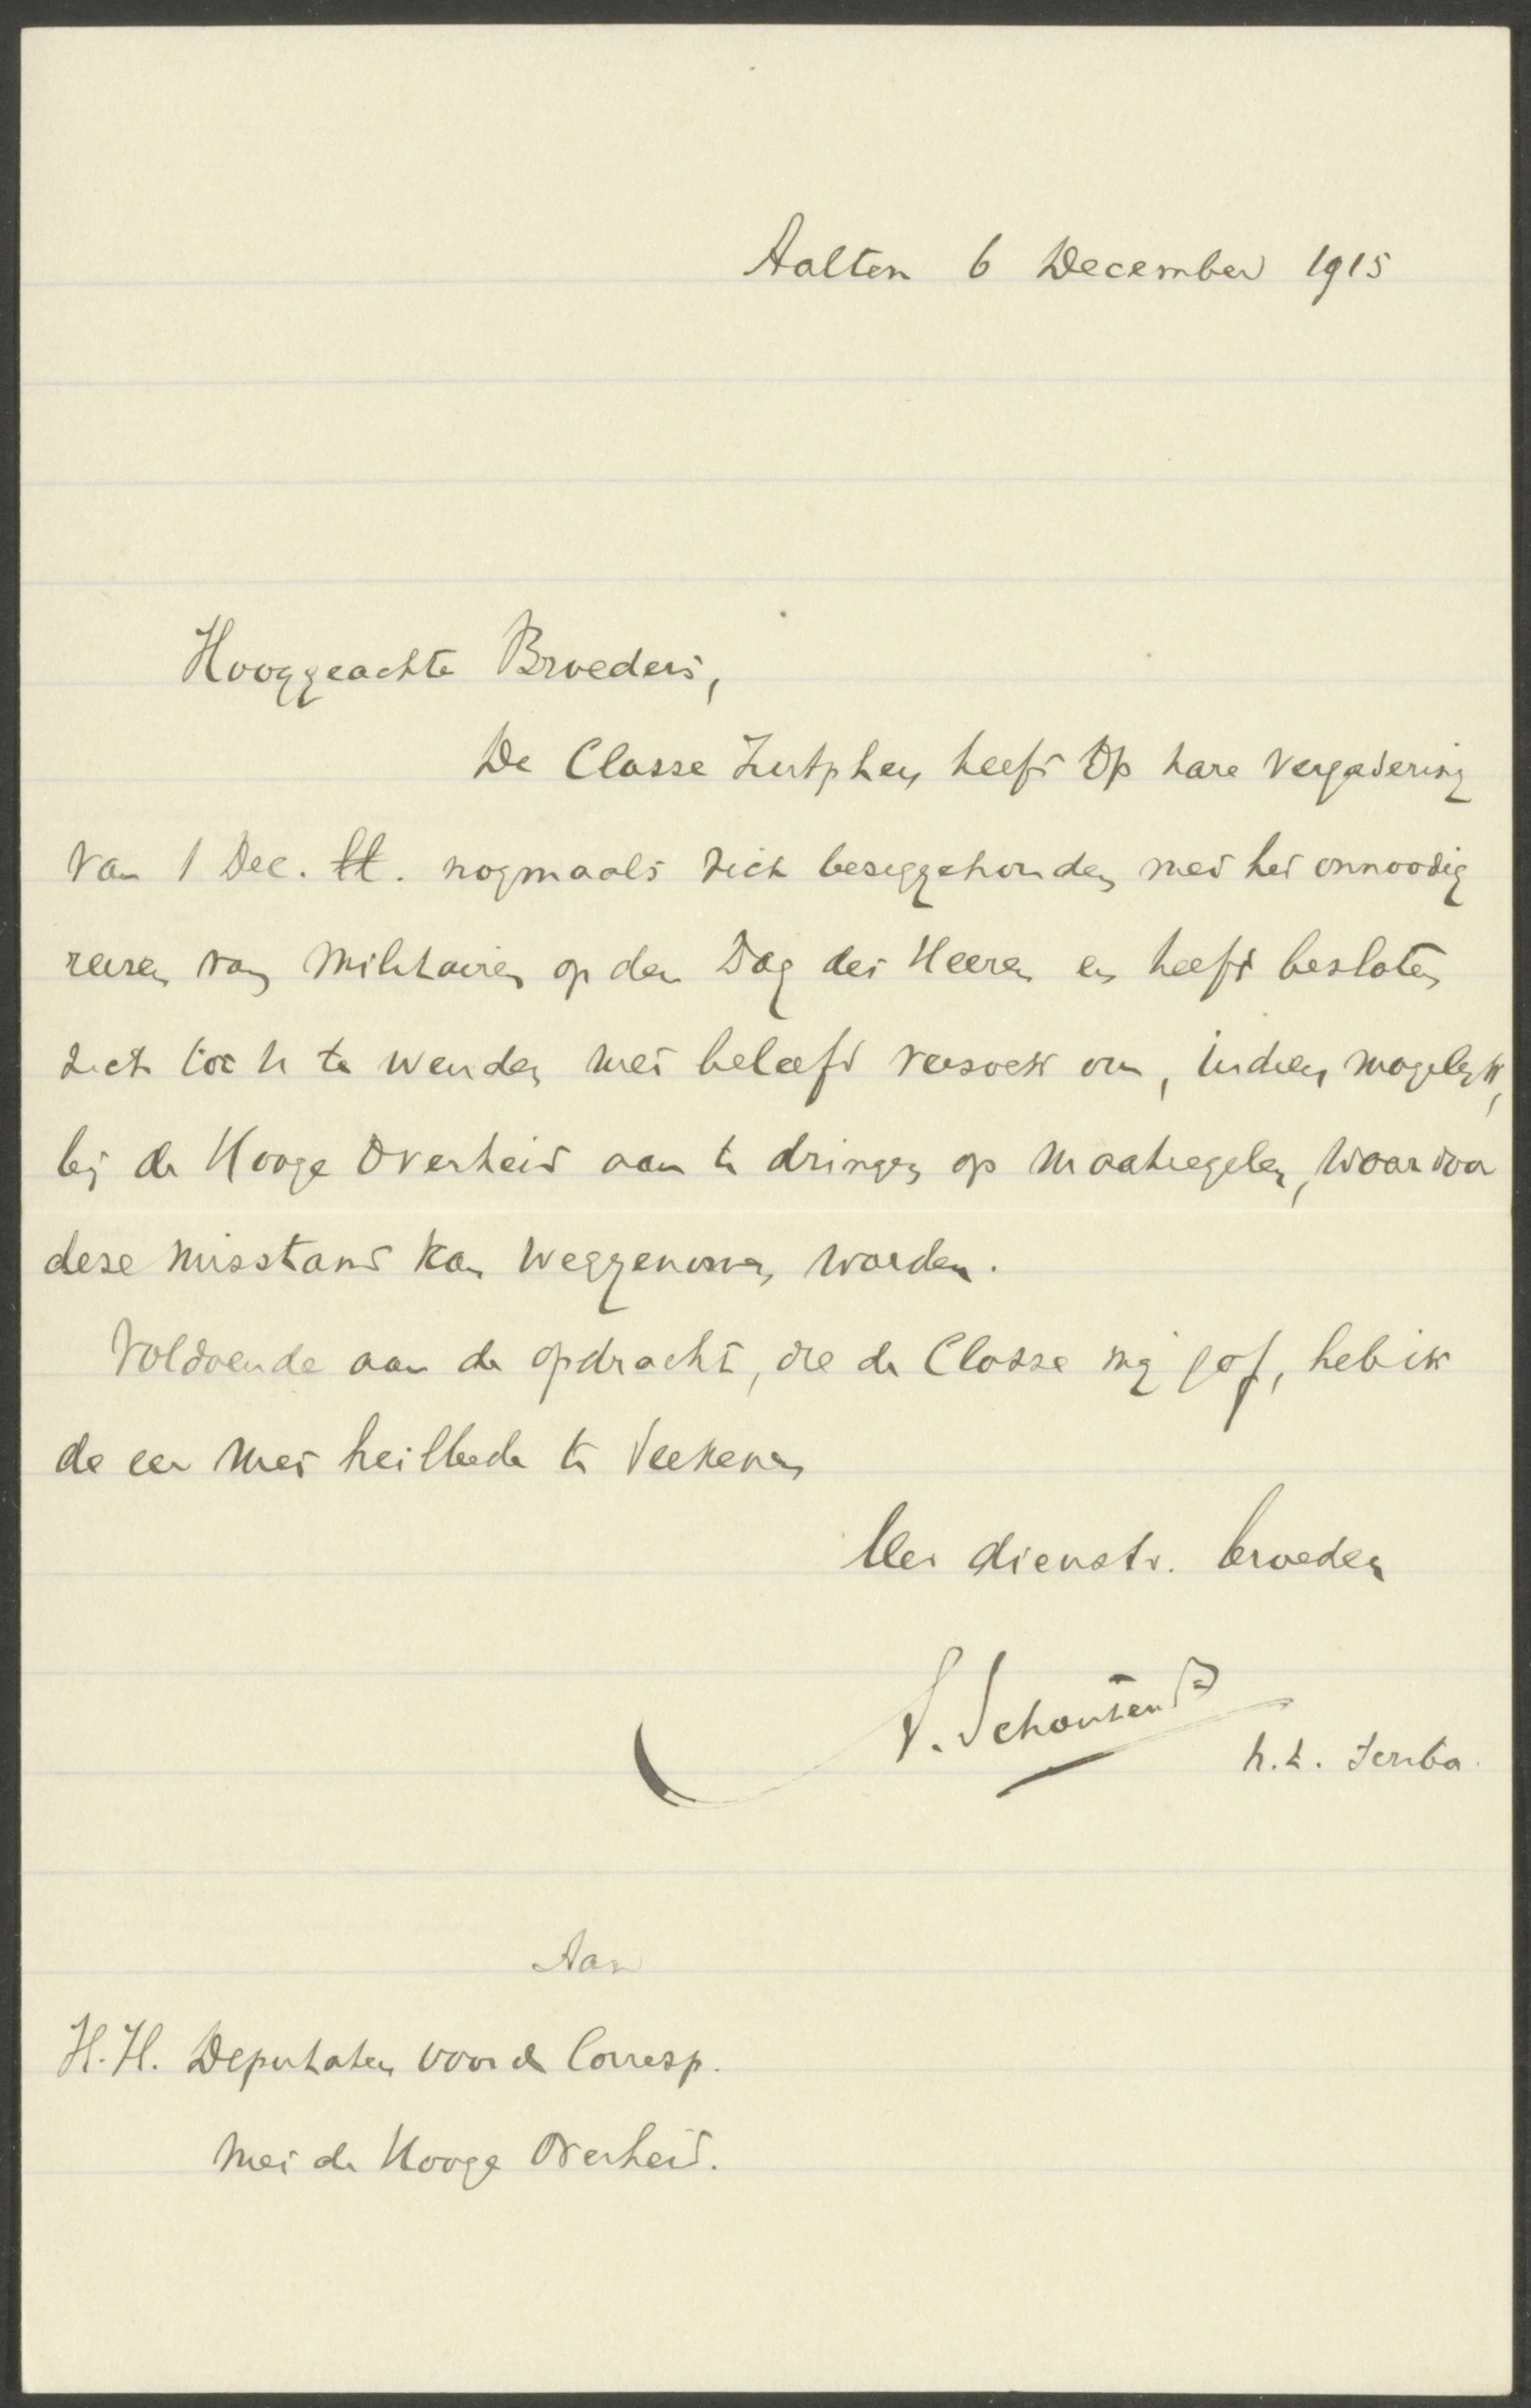 Aalten 6 December 1915
Hooggeachte Broeders,
De Classe Zutphen heeft op hare vergadering
van 1 Dec. ll. nogmaals zich beziggehouden met het onnoodig
reizen van militairen op den Dag des Heeren en heeft besloten
zich tot U te wenden met beleefd verzoek om, indien mogelijk,
bij de Hooge Overheid aan te dringen op maatregelen, waardoor
deze misstand kan weggenomen worden.
Voldoende aan de opdracht, die de Classe mij gaf, heb ik
de eer met heilbede te teekenen
Uw dienstv. broeder
Schouten
h.t. Scriba.
Aan
H.H. Deputaten voor de Corresp.
met de Hooge Overheid.